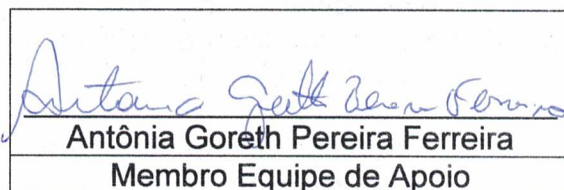 Antônia Goreth Pereira Ferreira
Antônia Goreth Pereira Ferreira
Membro Equipe de Apoio